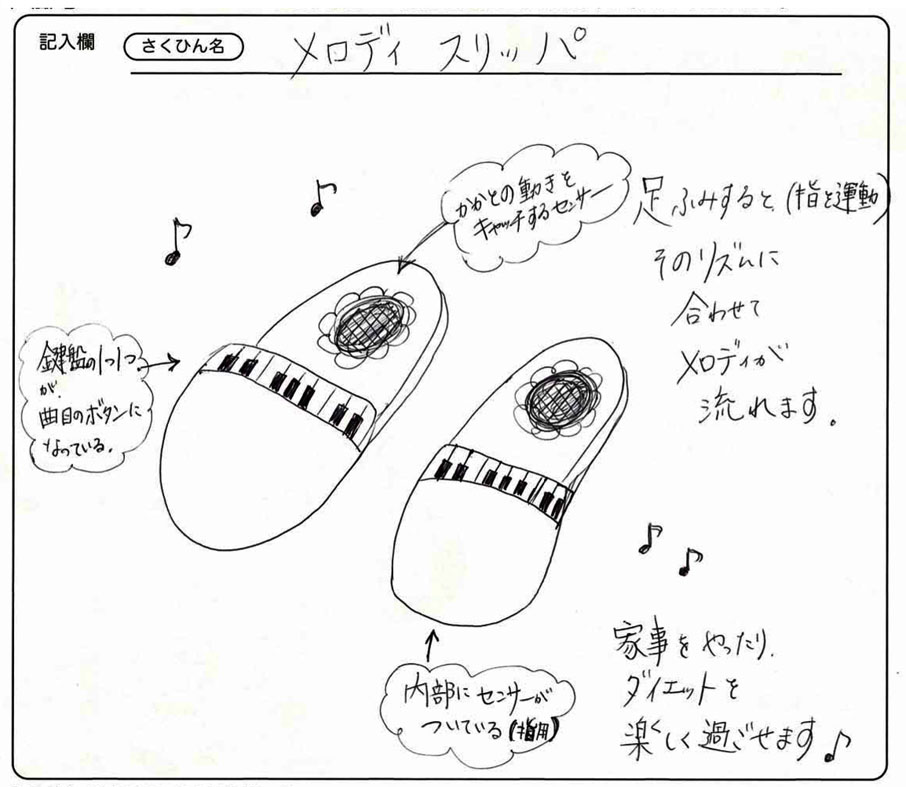 記入欄 さくひん名 メロディ スリッパ
かかとの動きを
キャッチするセンサー
足ふみすると、(指を運動)
そのリズムに
合わせて
メロディが
流れます。
鍵盤の1つ1つ
が、
曲目のボタンに
なっている。
内部にセンサーが
ついている(指用)
家事をやったり、
ダイエットを
楽しく過ごせます